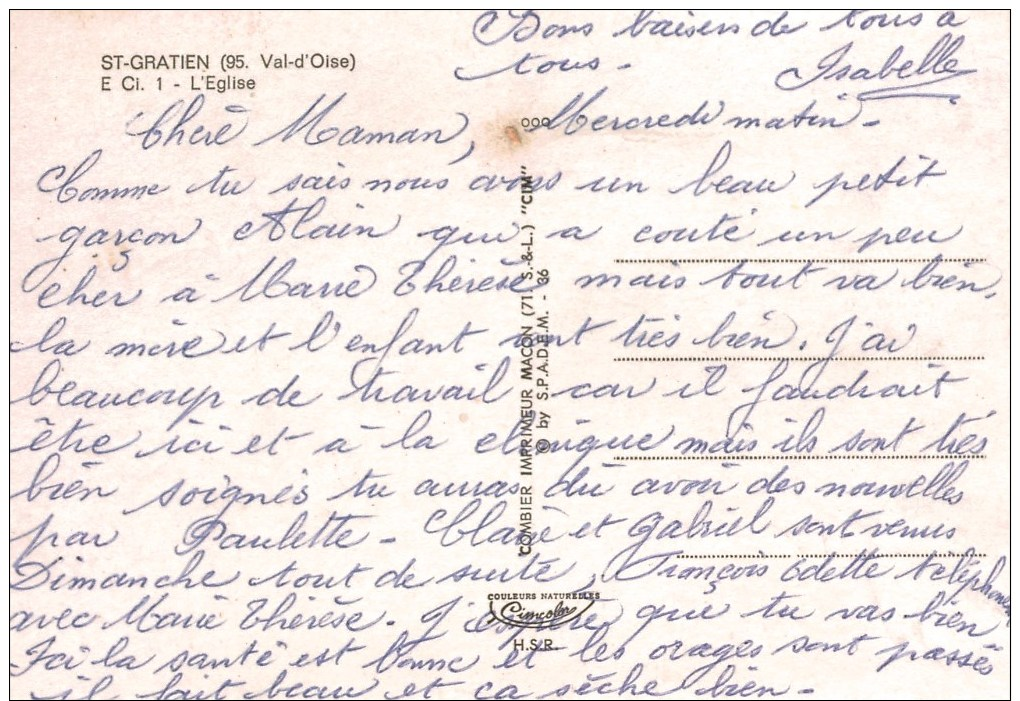 Bons baisers de tous à
tous - Isabelle
ST-GRATIEN (95. Val-d'Oise)
E Ci. 1 - L'Eglise
Chère Maman, Mercredi matin -
Comme tu sais nous avons un beau petit
garçon Alain qui a couté un peu
cher à Marie Thérèse mais tout va bien,
la mère et l'enfant vont très bien. J'ai
beaucoup de travail car il faudrait
être ici et à la clinique mais ils sont très
bien soignés tu auras dû avoir des nouvelles
par Paulette - Claire et Gabriel sont venus
Dimanche tout de suite, François Odette téléphoner
avec Marie Thérèse - J'espère que tu vas bien
Ici la santé est bonne et les orages sont passés
il fait beau et ça sèche bien -
COMBIER IMPRIMEUR MACON (71 S.-&-L.) "CIM"
© by S.P.A.D.E.M. - 36
COULEURS NATURELLES
Cimcolor
H.S.R.